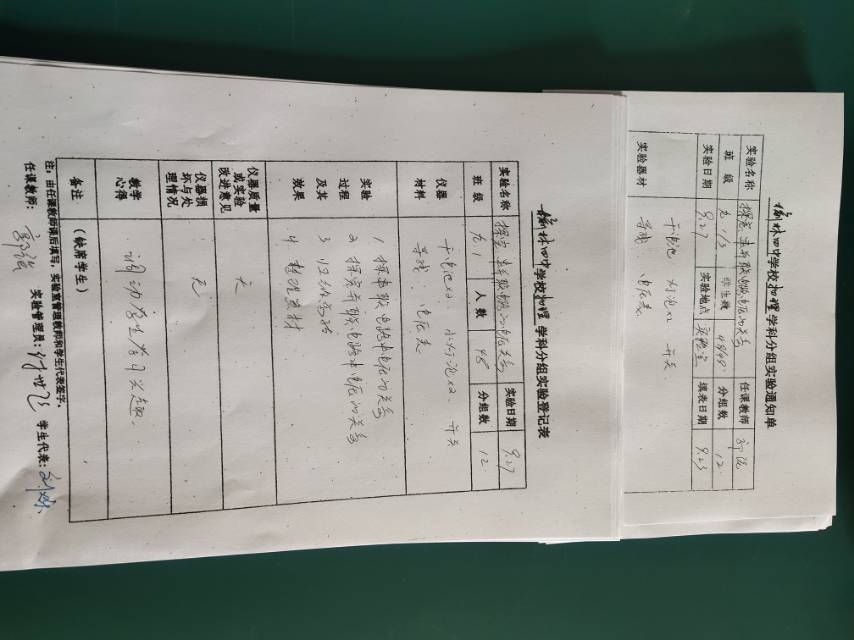 榆林四中学校物理学科分组实验通知单
实验名称 探究串并联电路的电压关系 任课教师
班级 九.1/3 学生数 48 48 分组数 12
实验日期 9.27 实验地点 实验室 填表日期 9.23
实验器材 干电池 灯泡x2 开关
导线 电压表
榆林四中学校物理学科分组实验登记表
实验名称 探究串并联电路的电压关系 实验日期 9.27
班级 九.1 人数 48 分组数 12
仪器材料 干电池x2 小灯泡x2 开关
导线 电压表
实验过程及其效果 1 探究串联电路中电压的关系
2 探究并联电路中电压的关系
3 归纳总结
4 整理器材
仪器质量或实验改进意见 无
仪器损坏与处理情况 无
教学心得 调动学生学习兴趣.
备注 (缺席学生)
注:由任课教师课后填写,实验室管理教师和学生代表签字。
任课教师: 实验管理员: 学生代表: